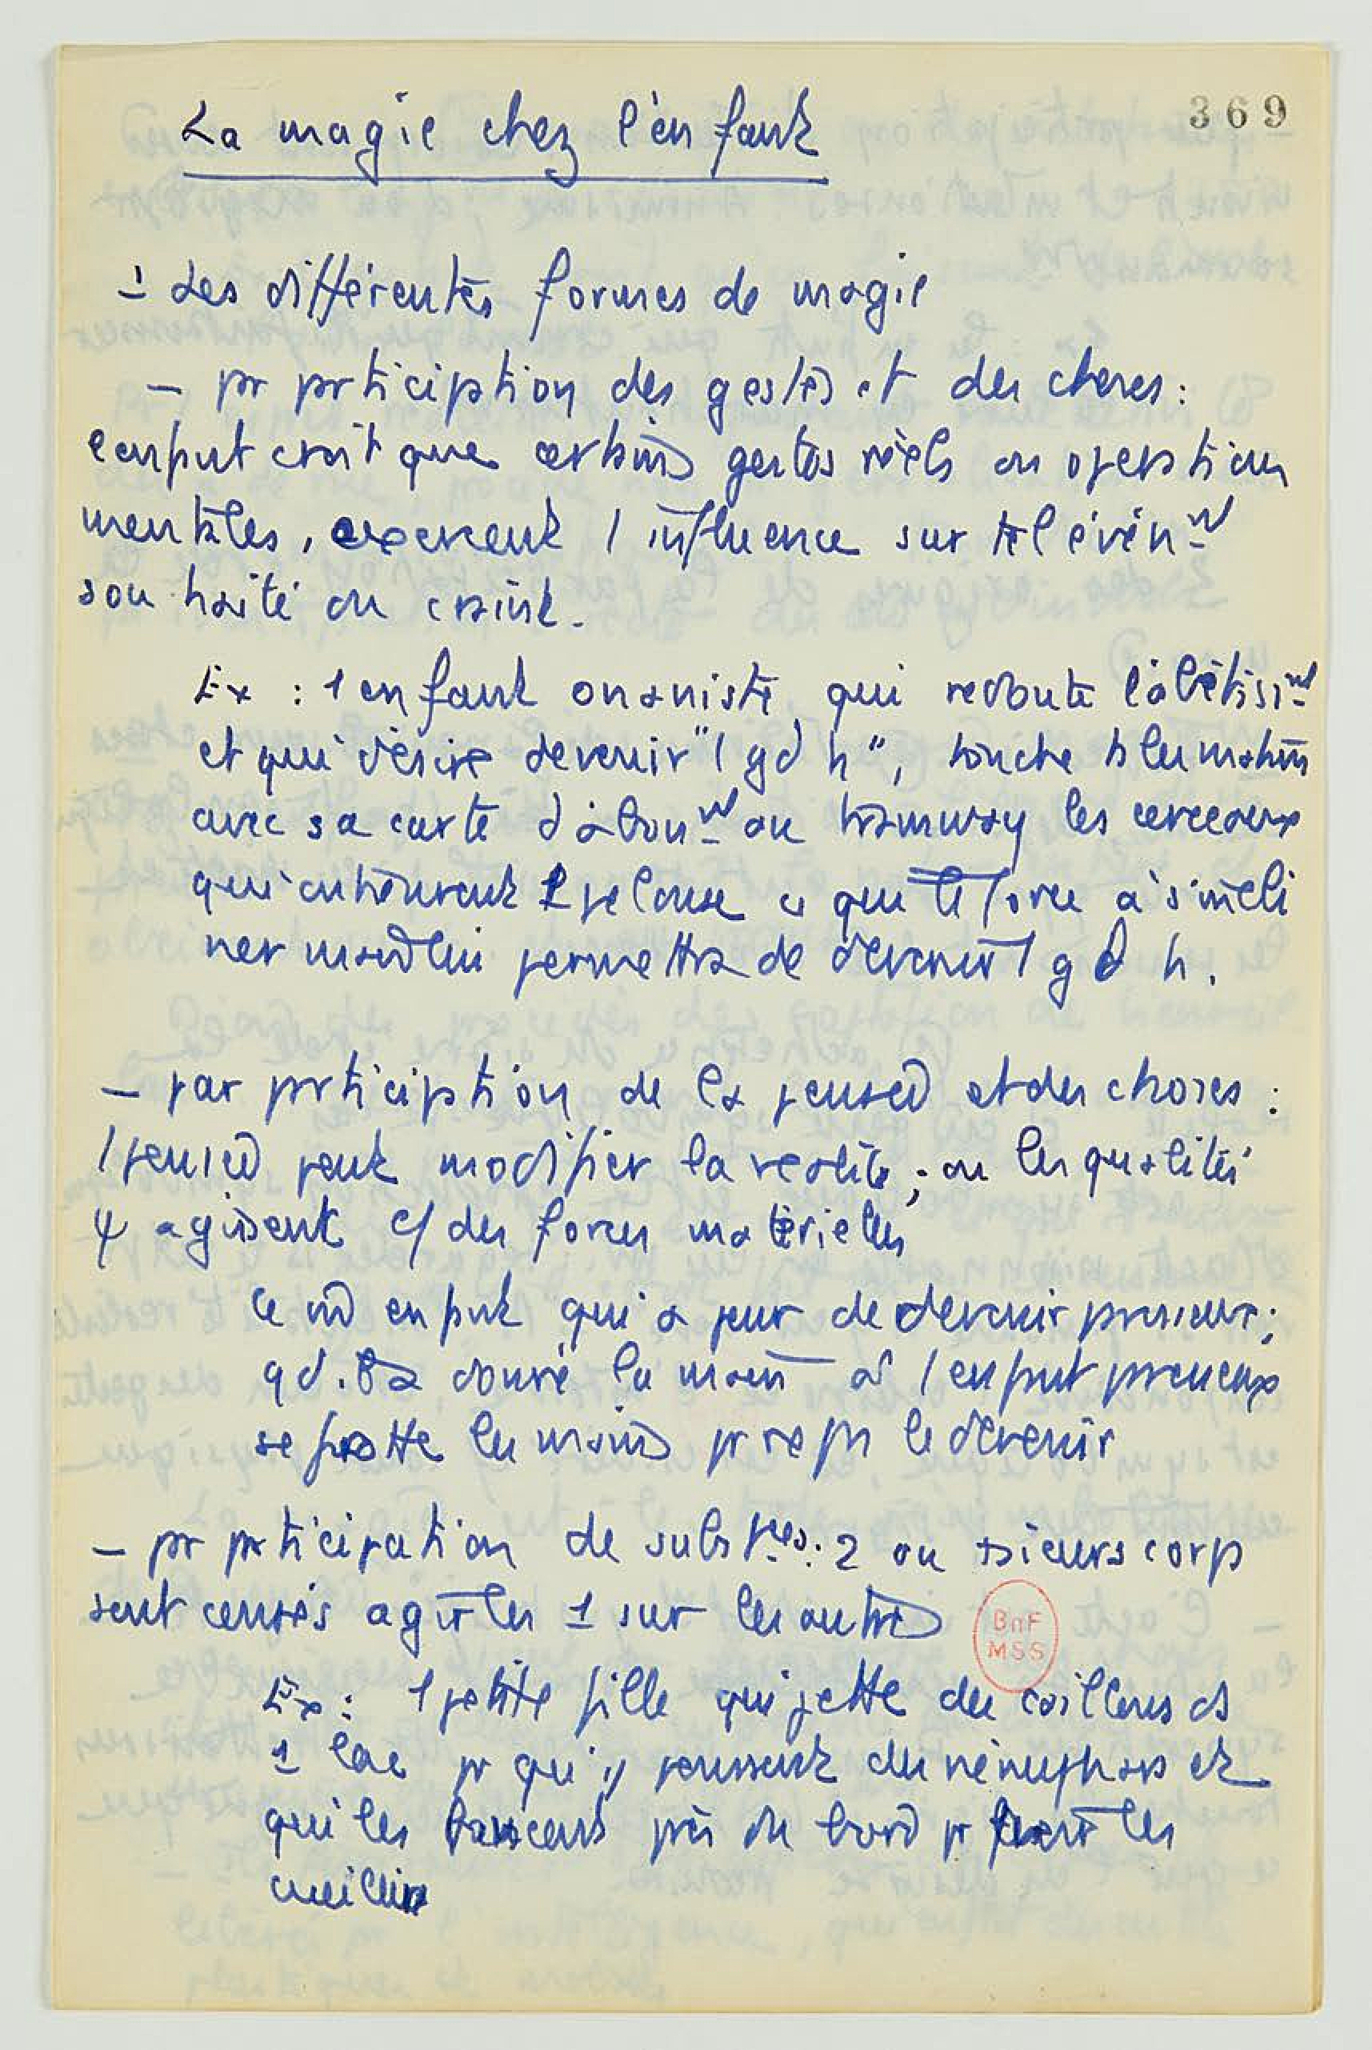 369
La magie chez l'enfant
1 Les différentes formes de magie
– pr prticiption des gestes et des choses :
l'enfant croit que certains gestes réels ou opération
mentales, exercent 1 influence sur tel évén nt
souhaité ou craint.
Ex : 1 enfant onaniste qui redoute l'abêtiss nt
et qui désire devenir "1 gd h", touche ts les matins
avec sa carte d'abon nt au tramway les cerceaux
qui entourent 1 pelouse ce qui le force à s'incli
ner mais lui permettra de devenir 1 gd h.
– par prticiption de la pensée et des choses :
1 pensée peut modifier la réalité ; ou les qualités
ψ agissent c/ des forces matérielles
ce enfant qui a peur de devenir paresseux ;
qd. donné la main à 1 enfant paresseux
se frotte les mains pr ne pas le devenir
– pr prticipation de subst ces : 2 ou +sieurs corps
sont censés agir les 1 sur les autres
BnF
MSS
Ex : 1 petite fille qui jette des cailloux ds
1 lac pr qu'y poussent des nénuphars et
qui les près du bord pr les
cueillir